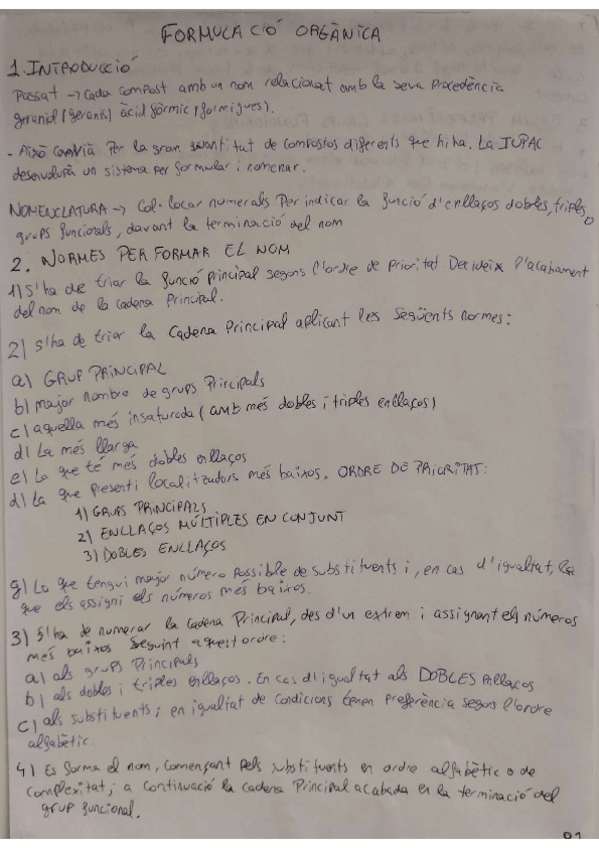 FORMULACIÓ ORGÀNICA
1. INTRODUCCIÓ
Passat → Cada compost amb un nom relacionat amb la seva procedència
geraniol (gerani) àcid fòrmic (formigues).
- Això canvià per la gran quantitat de compostos diferents que hi ha. La IUPAC
desenvolupà un sistema per formular i nomenar.
NOMENCLATURA → Col·locar numerals per indicar la funció d'enllaços dobles, triples o
grups funcionals, davant la terminació del nom
2. NORMES PER FORMAR EL NOM
1) S'ha de triar la funció principal segons l'ordre de prioritat. Decideix l'acabament
del nom de la cadena principal.
2) S'ha de triar la cadena principal aplicant les següents normes:
a) GRUP PRINCIPAL
b) major nombre de grups principals
c) aquella més insaturada (amb més dobles i triples enllaços)
d) La més llarga
e) La que té més dobles enllaços
d) La que presenti localitzadors més baixos. ORDRE DE PRIORITAT:
1) GRUPS PRINCIPALS
2) ENLLAÇOS MÚLTIPLES EN CONJUNT
3) DOBLES ENLLAÇOS
g) La que tengui major número possible de substituents i, en cas d'igualtat, la
que els assigni els números més baixos.
3) S'ha de numerar la cadena principal, des d'un extrem i assignant els números
més baixos seguint aquest ordre:
a) als grups principals
b) als dobles i triples enllaços. En cas d'igualtat als DOBLES enllaços
c) als substituents; en igualtat de condicions tenen preferència segons l'ordre
alfabètic.
4) Es forma el nom, començant pels substituents en ordre alfabètic o de
complexitat, a continuació la cadena principal acabada en la terminació del
grup funcional.